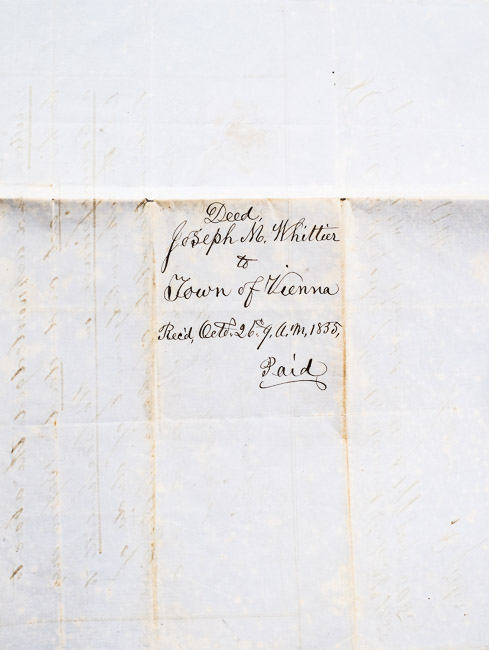 Deed,
Joseph M. Whittier
to
Town of Vienna
Rec'd, Octr. 26th. 9, A.M, 1855,
Paid